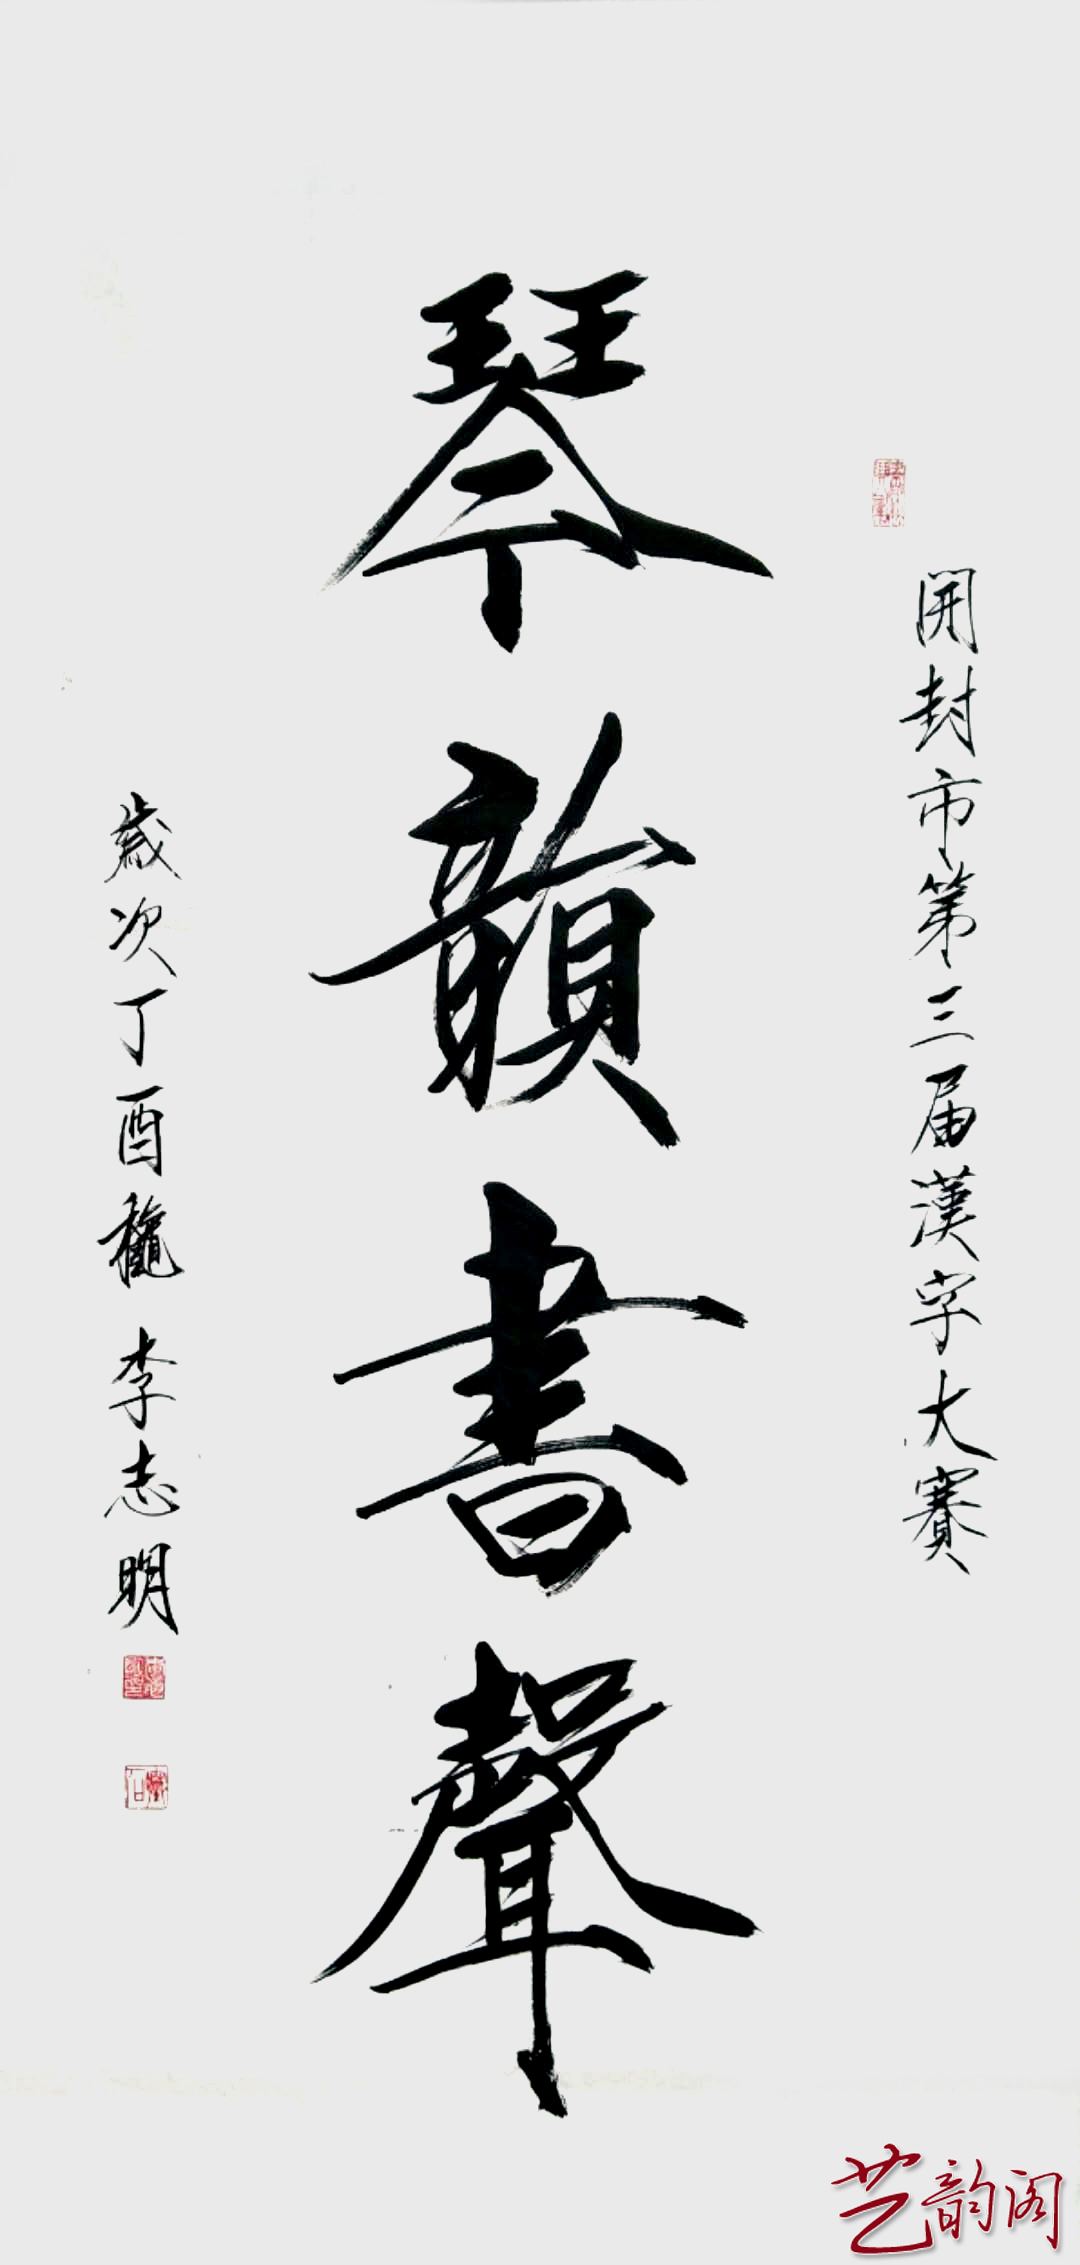 開封市第三届漢字大賽
琴韻書聲
歲次丁酉龝
李志明
艺韵阁